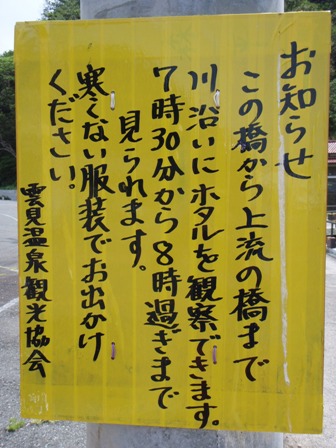 お知らせ
この橋から上流の橋まで
川沿いにホタルを観察できます。
7時30分から8時過ぎまで
見られます。
寒くない服装でお出かけ
ください。
雲見温泉観光協会